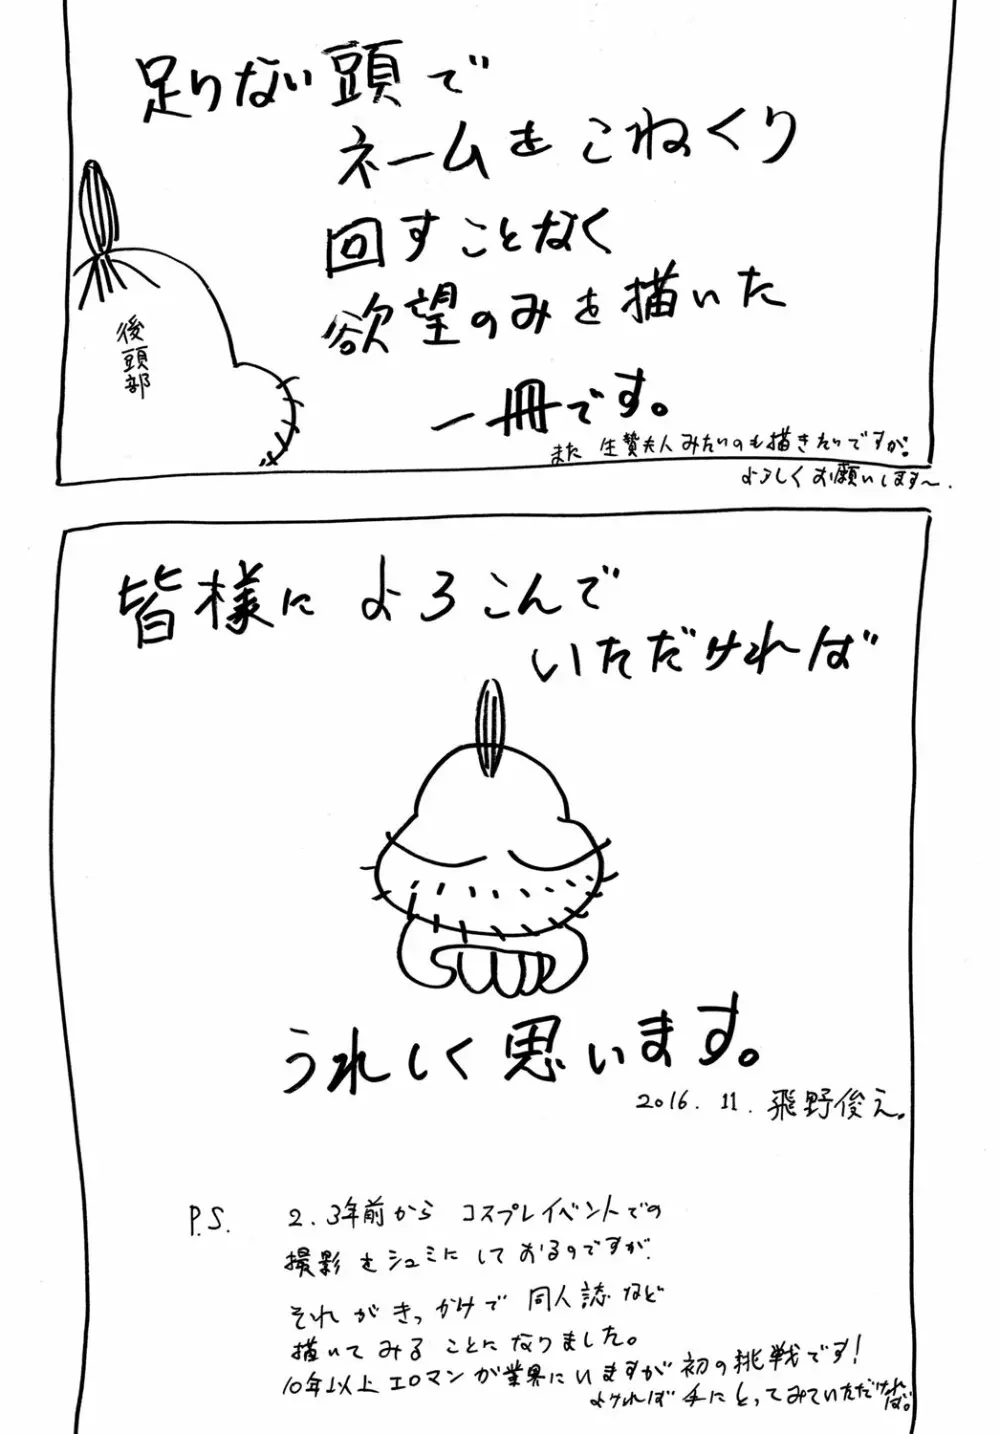 足りない頭で
ネームをこねくり
回すことなく
欲望のみを描いた
一冊です。
また 生贄夫人みたいのも描きたいですが。
よろしくお願いします〜.
後頭部
皆様に よろこんで
いただければ
うれしく思います。
2016. 11. 飛野俊之。
P.S. 2、3年前から コスプレイベントでの
撮影をシュミにしておるのですが、
それがきっかけで 同人誌など
描いてみることになりました。
10年以上エロマンガ業界にいますが初の挑戦です!
よければ手にとってみていただければ。